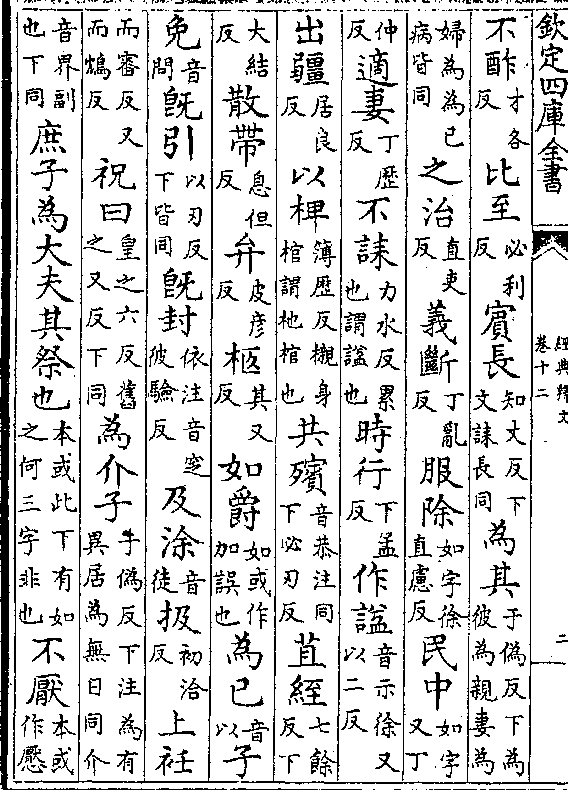 欽定四庫全書
經典釋文
卷十二
二
不酢才各反比至必利反賓長知丈反下文誄長同為其于偽反下為彼為親妻為
婦為為已病皆同之治直吏反義斷丁亂反服除如字徐直慮反民中如字又丁
仲反適妻丁歷反不誄力水反累也謂謚也時行下孟反作謚音示徐又以二反
出疆居良反以椑簿歷反櫬身棺謂杝棺也共殯音恭注同下必刃反苴絰七餘反下
大結反散帶息但反弁皮彥反柩其又反如爵如或作加誤也為已音以子
免音問旣引以刃反下皆同旣封依注音窆彼驗反及涂音徒扱初洽反上衽
而審反又而鴆反祝曰皇之六反舊之又反下同為介子于偽反下注為有異居為無日同介
音界副也下同庶子為大夫其祭也本或此下有如之何三字非也不厭本或作懕